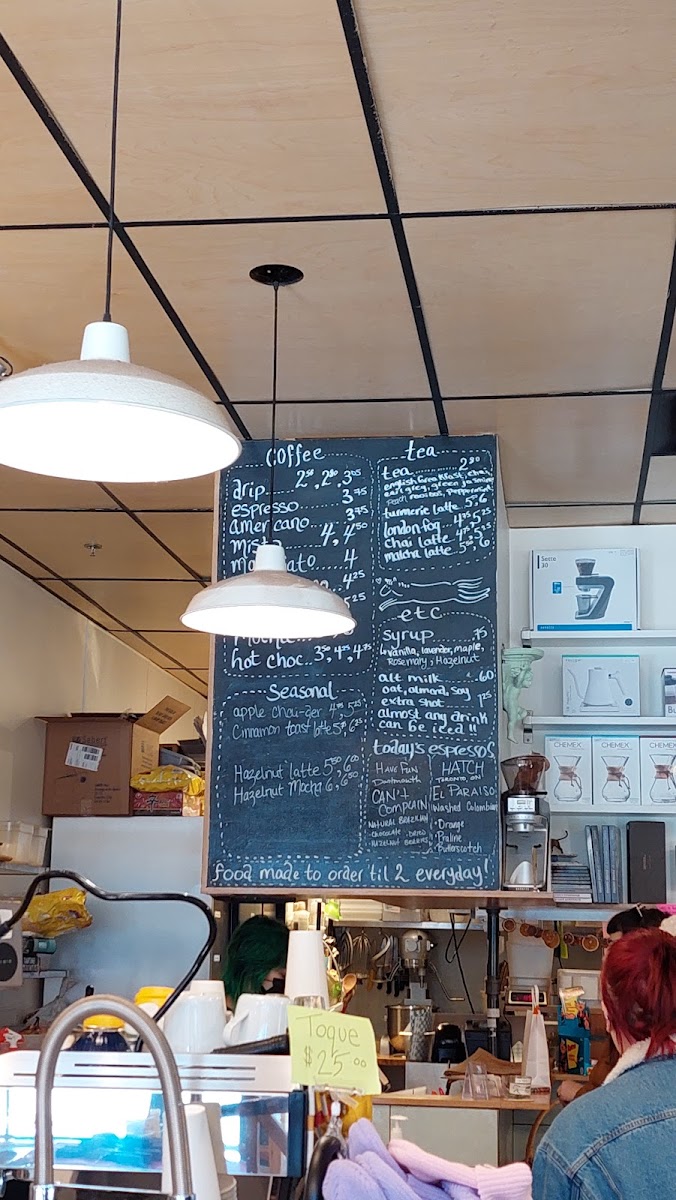 Coffee
drip 2⁵⁰, 2⁸⁰, 3⁰⁵
espresso 3⁷⁵
americano 3⁷⁵
misto 4, 4⁵⁰
4
4²⁵
hot choc. 3⁵⁰, 4²⁵, 4⁷⁵
Seasonal
apple chai-der 4⁷⁵, 5²⁵
Cinnamon toast latte 5⁵⁰, 6²⁵
Hazelnut latte 5⁵⁰ 6⁰⁰
Hazelnut Mocha 6, 6⁵⁰
tea
tea 2⁸⁰
english breakfast, chai,
earl grey, green
Peach rooibos, Peppermint
turmeric latte 5⁵⁰ 6
london fog 4⁷⁵ 5²⁵
chai latte 4⁷⁵ 5²⁵
matcha latte 5⁵⁰ 6
etc
syrup .75
vanilla, lavender, maple,
Rosemary, Hazelnut
alt milk .60
oat, almond, soy
extra shot 1²⁵
almost any drink
can be iced !!
today's espressos
HAVE FUN
Dartmouth
CAN'T
COMPLAIN
NATURAL BRAZILIAN
CHOCOLATE
HAZELNUT
HATCH
TORONTO, ON
EL PARAISO
Washed Colombian
• Orange
• Praline
• Butterscotch
food made to order til 2 everyday!
Sette
30
CHEMEX
CHEMEX
CHEMEX
Toque
$25.⁰⁰